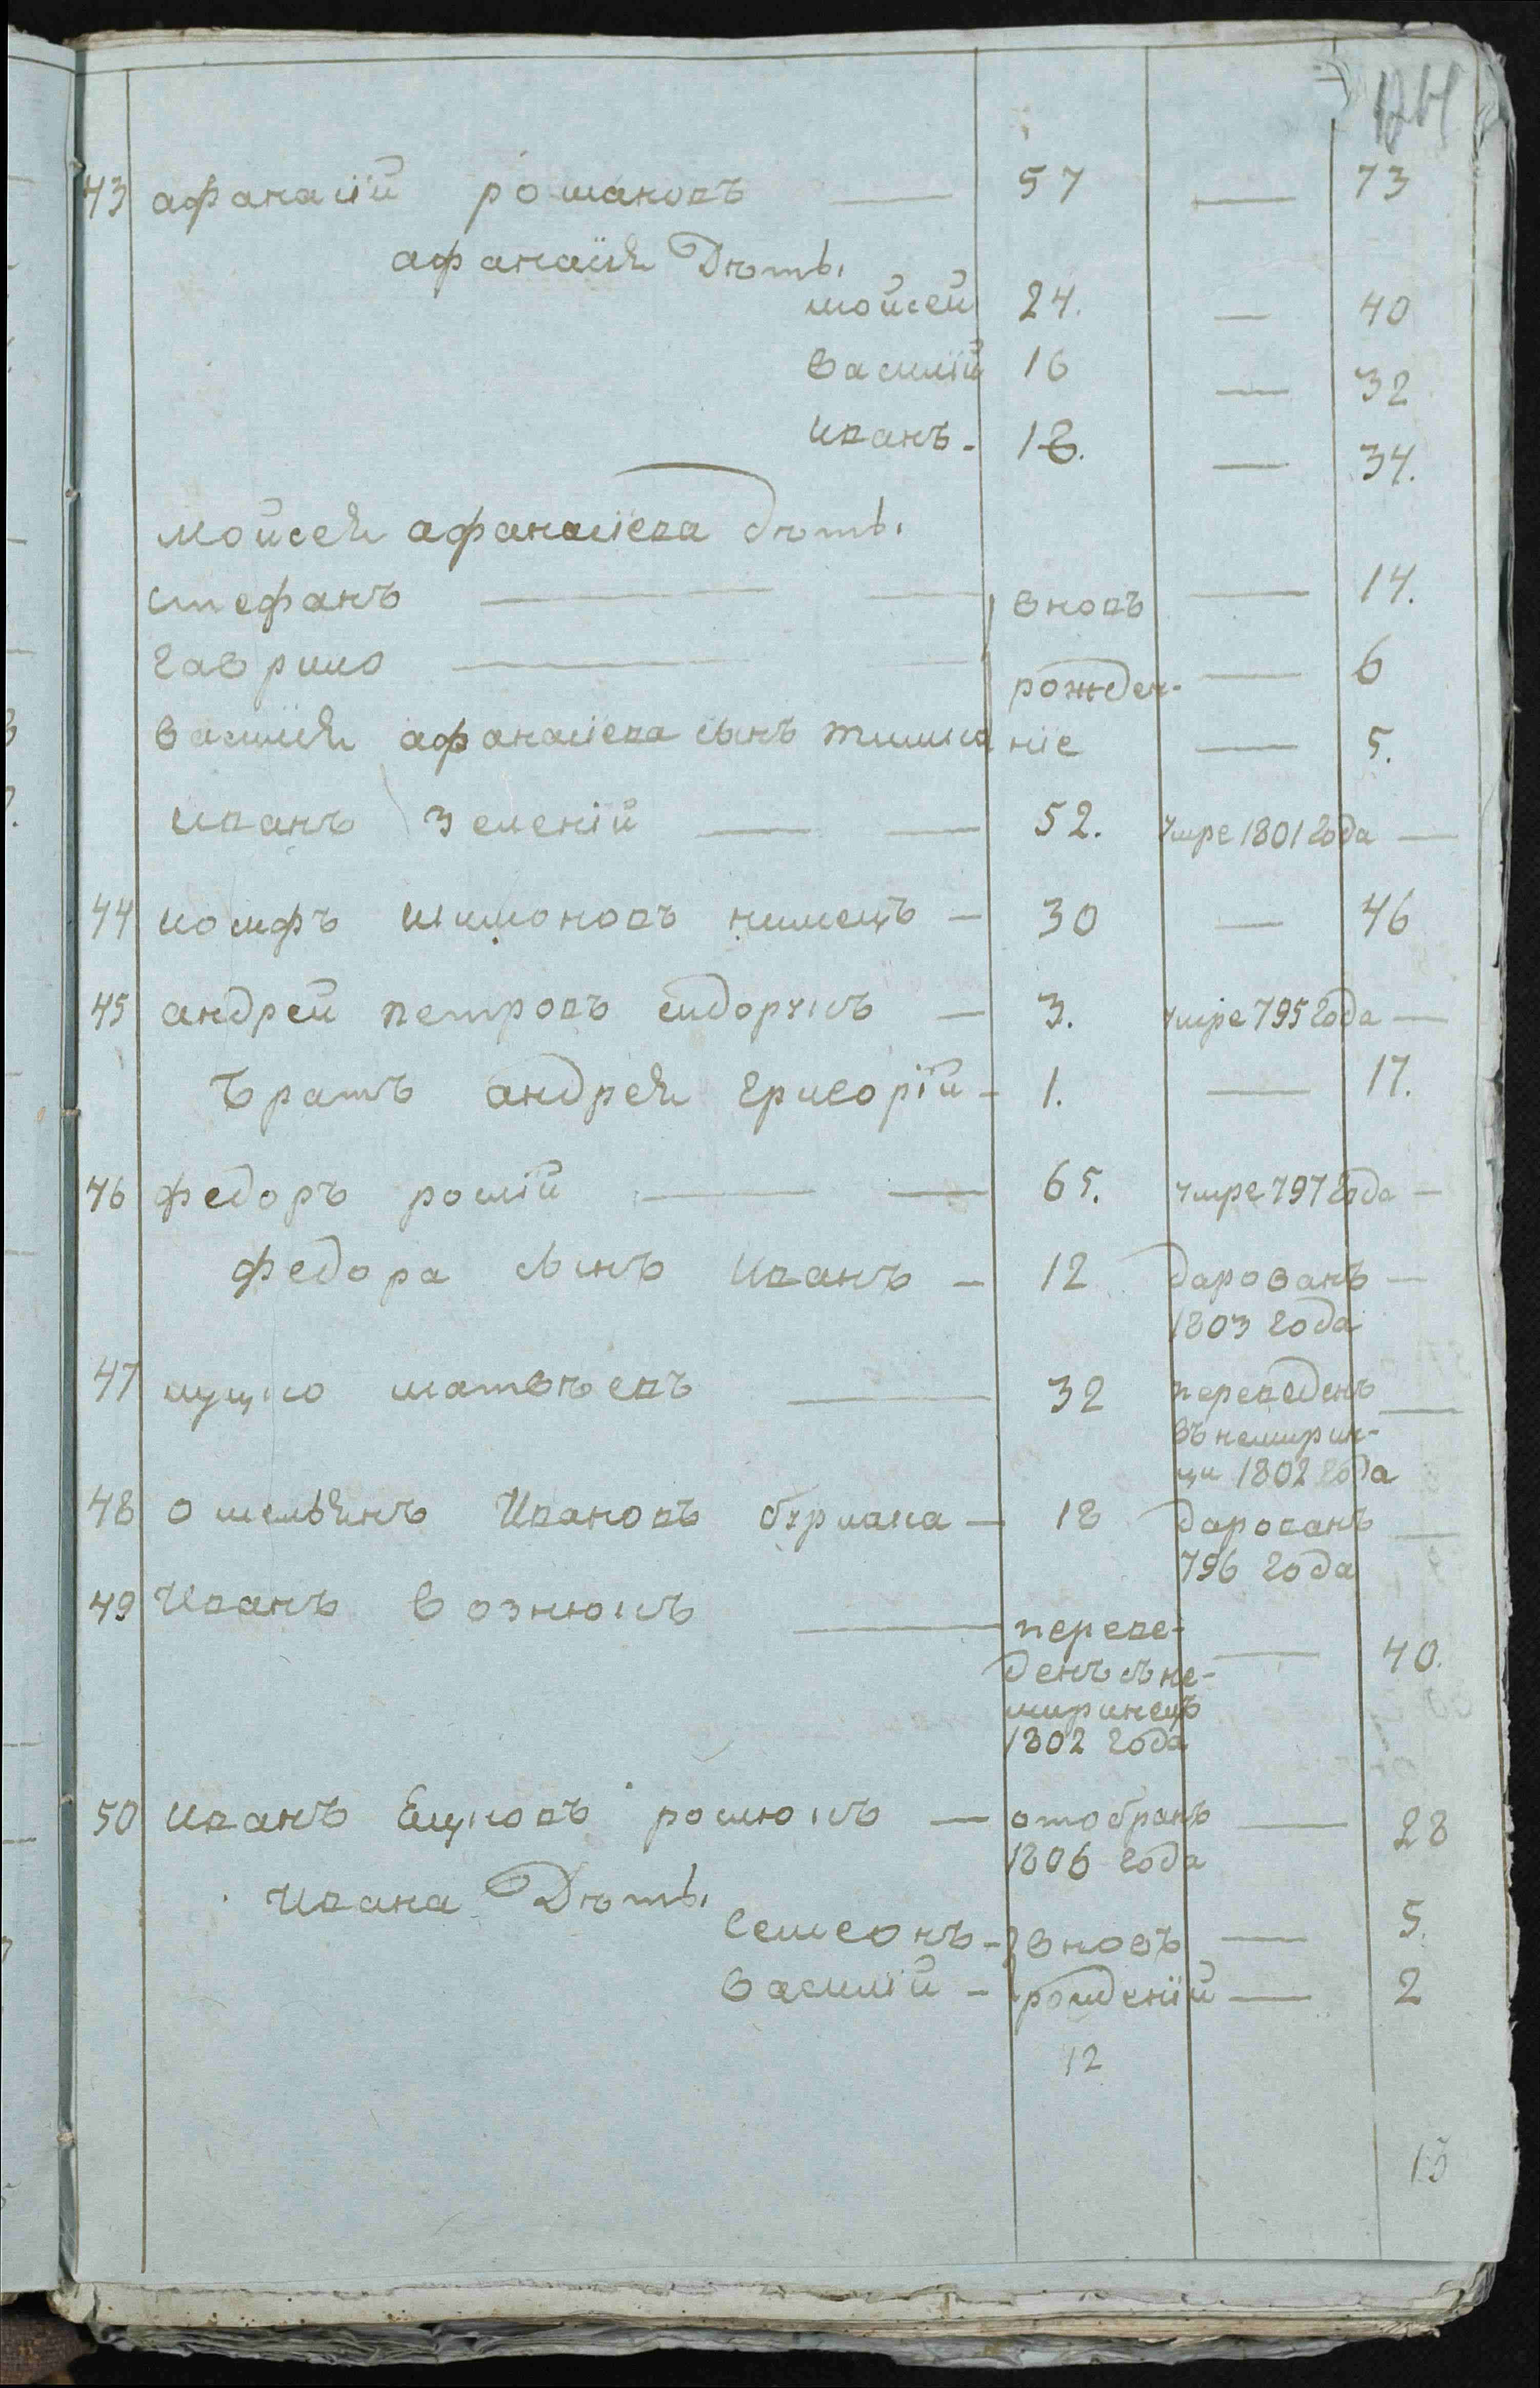 43 афанасій романовъ — 57 — 73
афанасія Дѣты
мойсей 24. — 40
василій 16 — 32
иванъ - 18. — 34.
мойсея афанасіева дѣты
стефанъ — вновь — 14.
гаврило — рожден- — 6
василія афанасіева сынъ тимко ніе — 5.
иванъ зеленій — 52. умре 1801 года —
44 иосифъ шимоновъ нимецъ — 30 — 46
45 андрей петровъ сидорчукъ — 3. умре 795 года —
братъ андрея григорій - 1. — 17.
46 федоръ ромій — 65. умре 797 года —
федора сынъ иванъ - 12 дарованъ —
1803 года
47 матвѣевъ — 32 переведенъ —
въ немирин-
ци 1802 года
48 омельянъ Ивановъ бурлака — 18 дарованъ —
796 года
49 Иванъ вознюкъ — переве- — 40.
денъ съ не-
миринецъ
1802 года
50 иванъ Ецковъ ромюкъ — отобранъ — 28
1806 года
ивана Дѣты
Семеонъ - вновь — 5.
василій - рожденій — 2
12
13